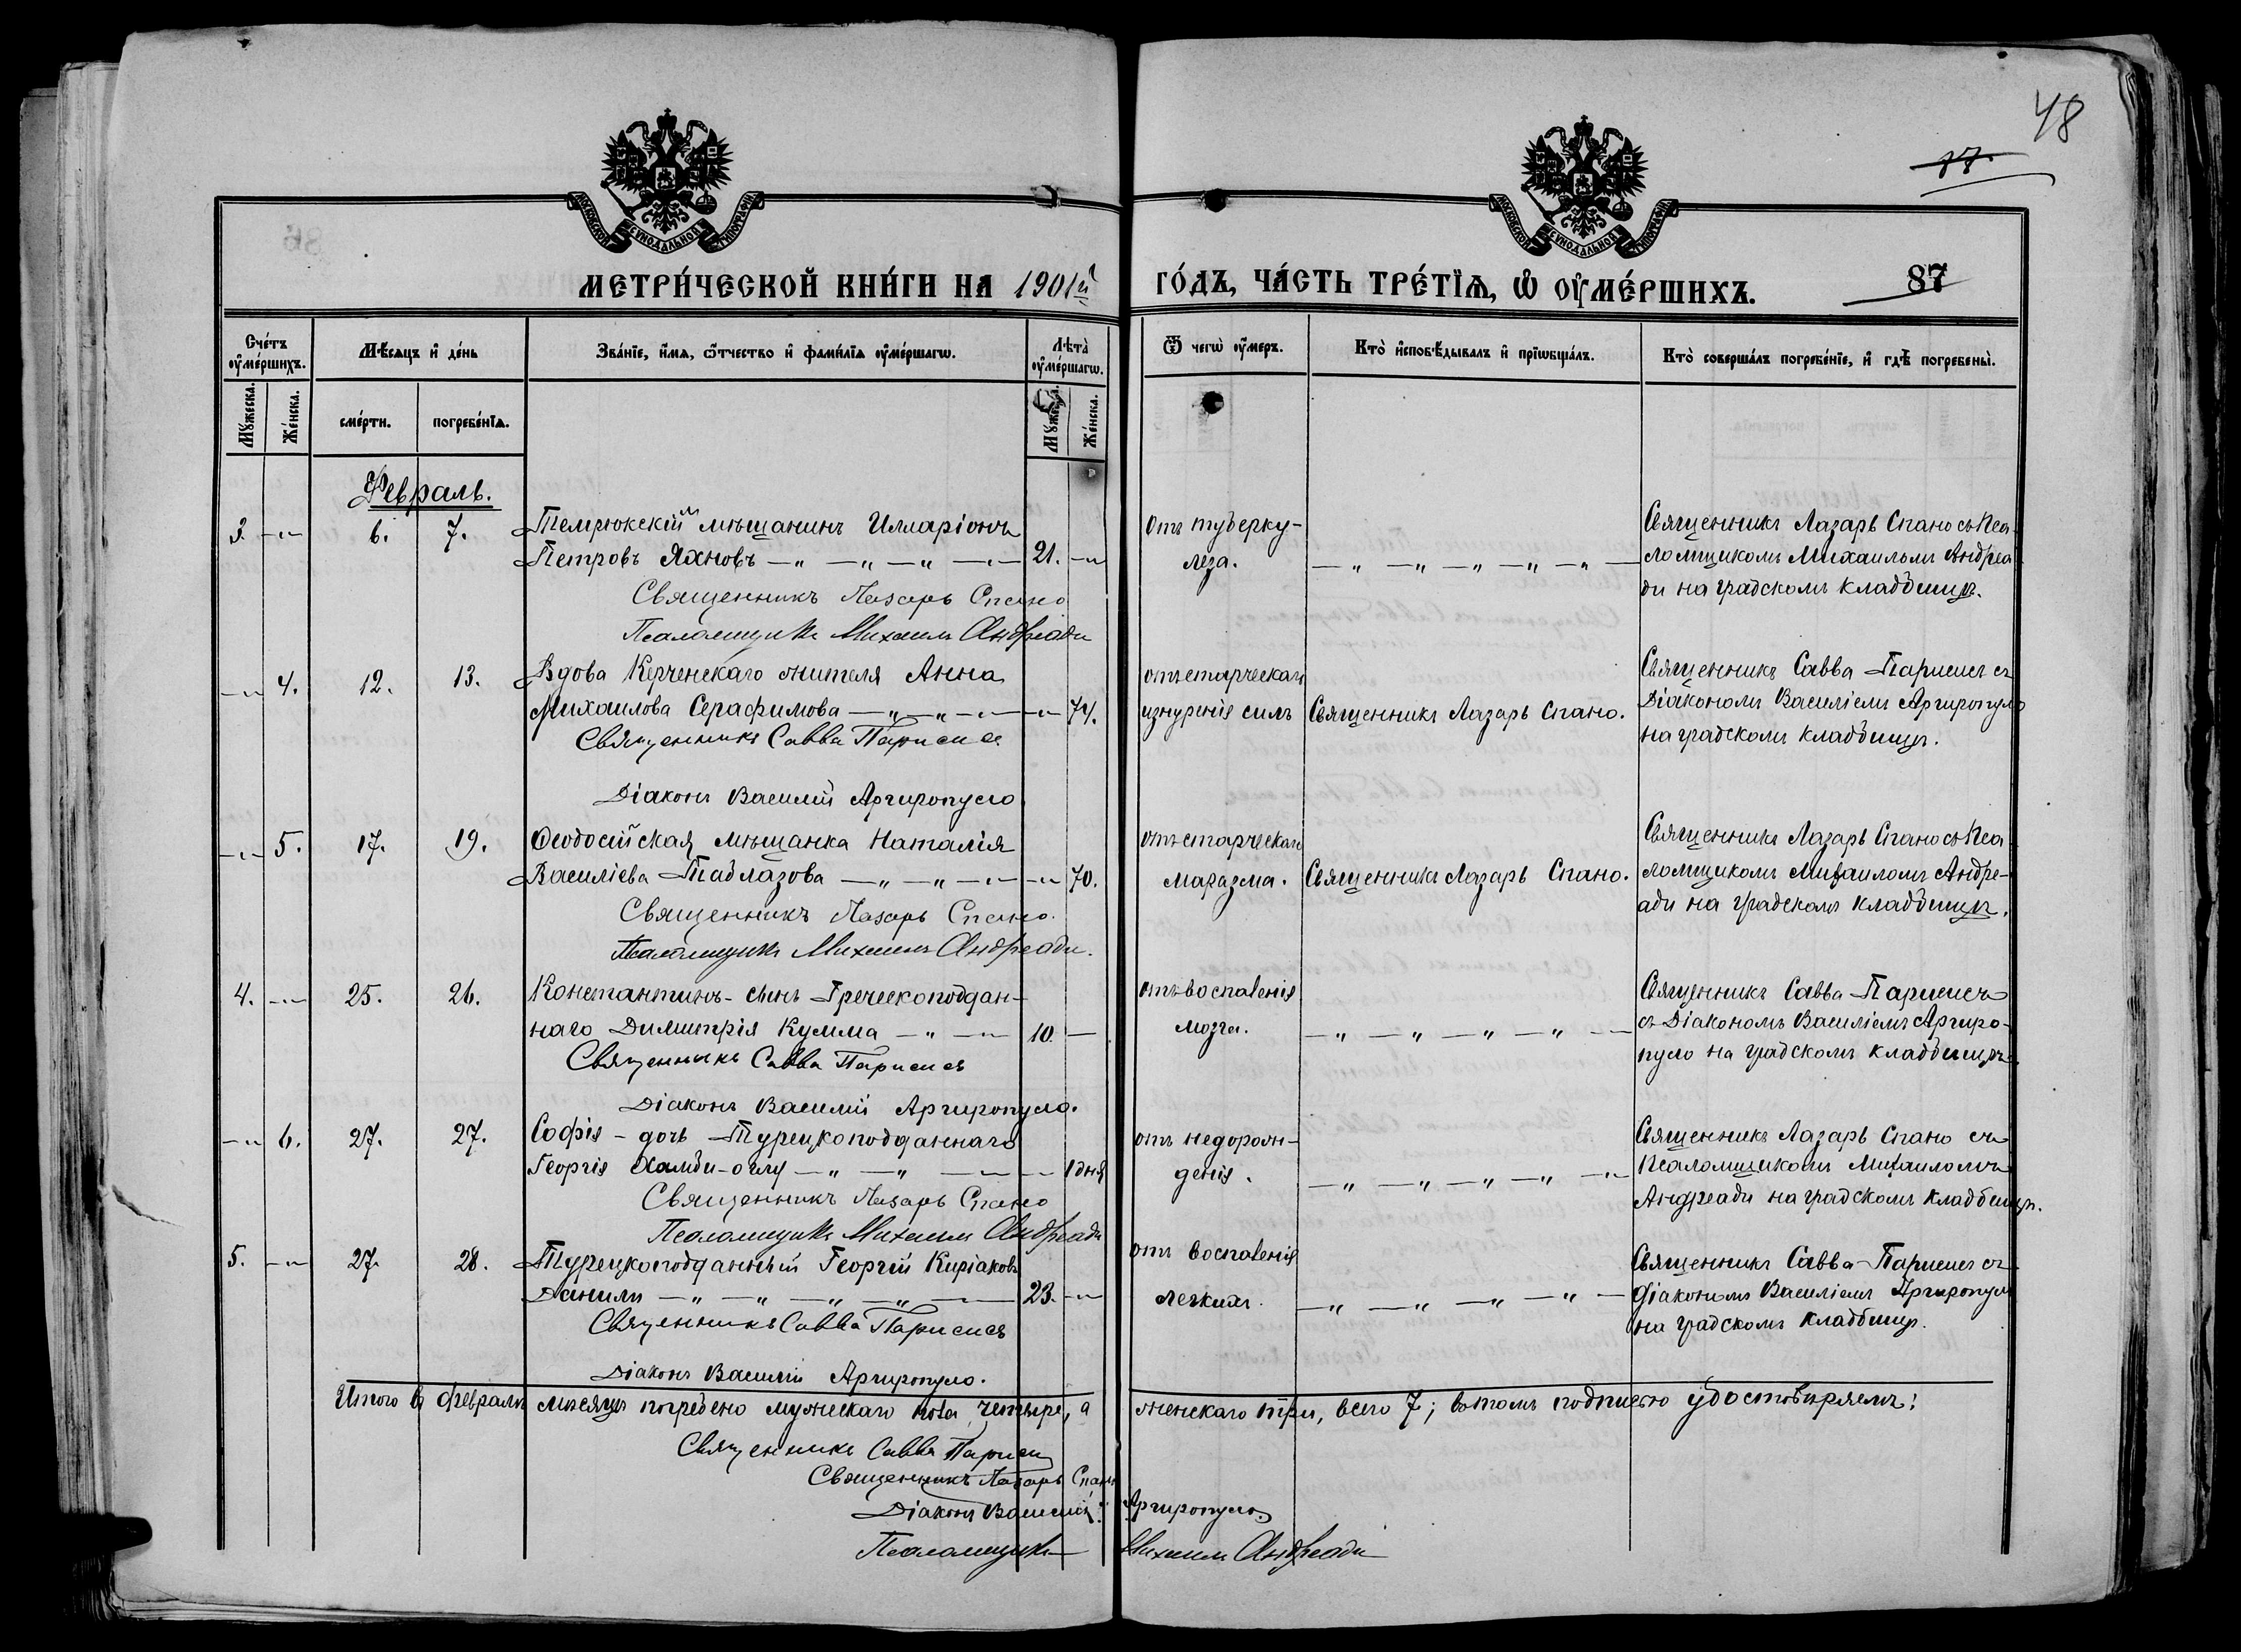 48
87.
МОСКОВСКОЙ СѴНОДАЛЬНОЙ ТИПОГРАФІИ
МОСКОВСКОЙ СѴНОДАЛЬНОЙ ТИПОГРАФІИ
МЕТРИ́ЧЕСКОЙ КНИ́ГИ НА 1901й ГО́ДЪ, ЧА́СТЬ ТРЕ́ТЇѦ, Ѡ ОУ҆МЕ́РШИХЪ. 87
Сче́тъ оу҆ме́ршихъ.
Мѣ́сяцъ и҆ де́нь
Зва́нїе, и҆́мя, ѻ҆́тчество и҆ фами́лїя оу҆ме́ршагѡ.
Лѣ́та оу҆ме́ршагѡ.
Ѿ чегѡ̀ оу҆́меръ.
Кто̀ и҆сповѣ́дывалъ и҆ прїѡбща́лъ.
Кто̀ соверша́лъ погребе́нїе, и҆ гдѣ̀ погребены̀.
Му́жеска. Же́нска.
сме́рти. погребе́нїя.
Му́жеска. Же́нска.
Февраль.
3. —„— 6. 7. Темрюкскій мѣщанинъ Илларіонъ
Петровъ Яхновъ —„—„—„—„— 21. —„
Священникъ Лазарь Спано
Псаломщикъ Михаилъ Андреади
отъ туберку-
леза.
—„—„—„—„—„—
Священникъ Лазарь Спано съ Пса-
ломщикомъ Михаиломъ Андреа-
ди на градскомъ кладбищѣ.
—„ 4. 12. 13. Вдова Керченскаго жителя Анна
Михаилова Серафимова —„—„—„—„ 74.
Священникъ Савва Парисисъ
Діаконъ Василій Аргиропуло.
отъ старческаго
изнуренія силъ
Священникъ Лазарь Спано.
Священникъ Савва Парисисъ съ
Діакономъ Василіемъ Аргиропуло
на градскомъ кладбищѣ.
—„— 5. 17. 19. Ѳеодосійская мѣщанка Наталія
Василіева Тадлазова —„—„—„—„ 70.
Священникъ Лазарь Спано.
Псаломщикъ Михаилъ Андреади.
отъ старческаго
маразма.
Священникъ Лазарь Спано.
Священникъ Лазарь Спано съ Пса-
ломщикомъ Михаиломъ Андре-
ади на градскомъ кладбищѣ.
4. —„— 25. 26. Константинъ - сынъ Греческоподдан-
наго Димитрія Кулма —„—„ 10. —
Священникъ Савва Парисисъ
Діаконъ Василій Аргиропуло.
отъ воспаленія
мозга.
—„—„—„—„—„—
Священникъ Савва Парисисъ
съ Діакономъ Василіемъ Аргиро-
пуло на градскомъ кладбищѣ.
—„ 6. 27. 27. Софія - дочь Турецкоподданнаго
Георгія Хамди-оглу —„—„—„—„ 1 дня
Священникъ Лазарь Спано
Псаломщикъ Михаилъ Андреади
отъ недорож-
денія.
—„—„—„—„—„
Священникъ Лазарь Спано съ
Псаломщикомъ Михаиломъ
Андреади на градскомъ кладбищѣ.
5. —„ 27. 28. Турецкоподданный Георгій Киріаковъ
Данилъ —„—„—„—„— 23. —„
Священникъ Савва Парисисъ
Діаконъ Василій Аргиропуло.
отъ воспаленія
легкихъ.
—„—„—„—„—
Священникъ Савва Парисисъ съ
Діакономъ Василіемъ Аргиропуло
на градскомъ кладбищѣ.
Итого въ февралѣ мѣсяцѣ погребено мужескаго пола четыре, а женскаго три, всего 7; въ томъ подписью удостовѣряемъ:
Священникъ Савва Парисис
Священникъ Лазарь Спано
Діаконъ Василій Аргиропуло.
Псаломщикъ Михаилъ Андреади